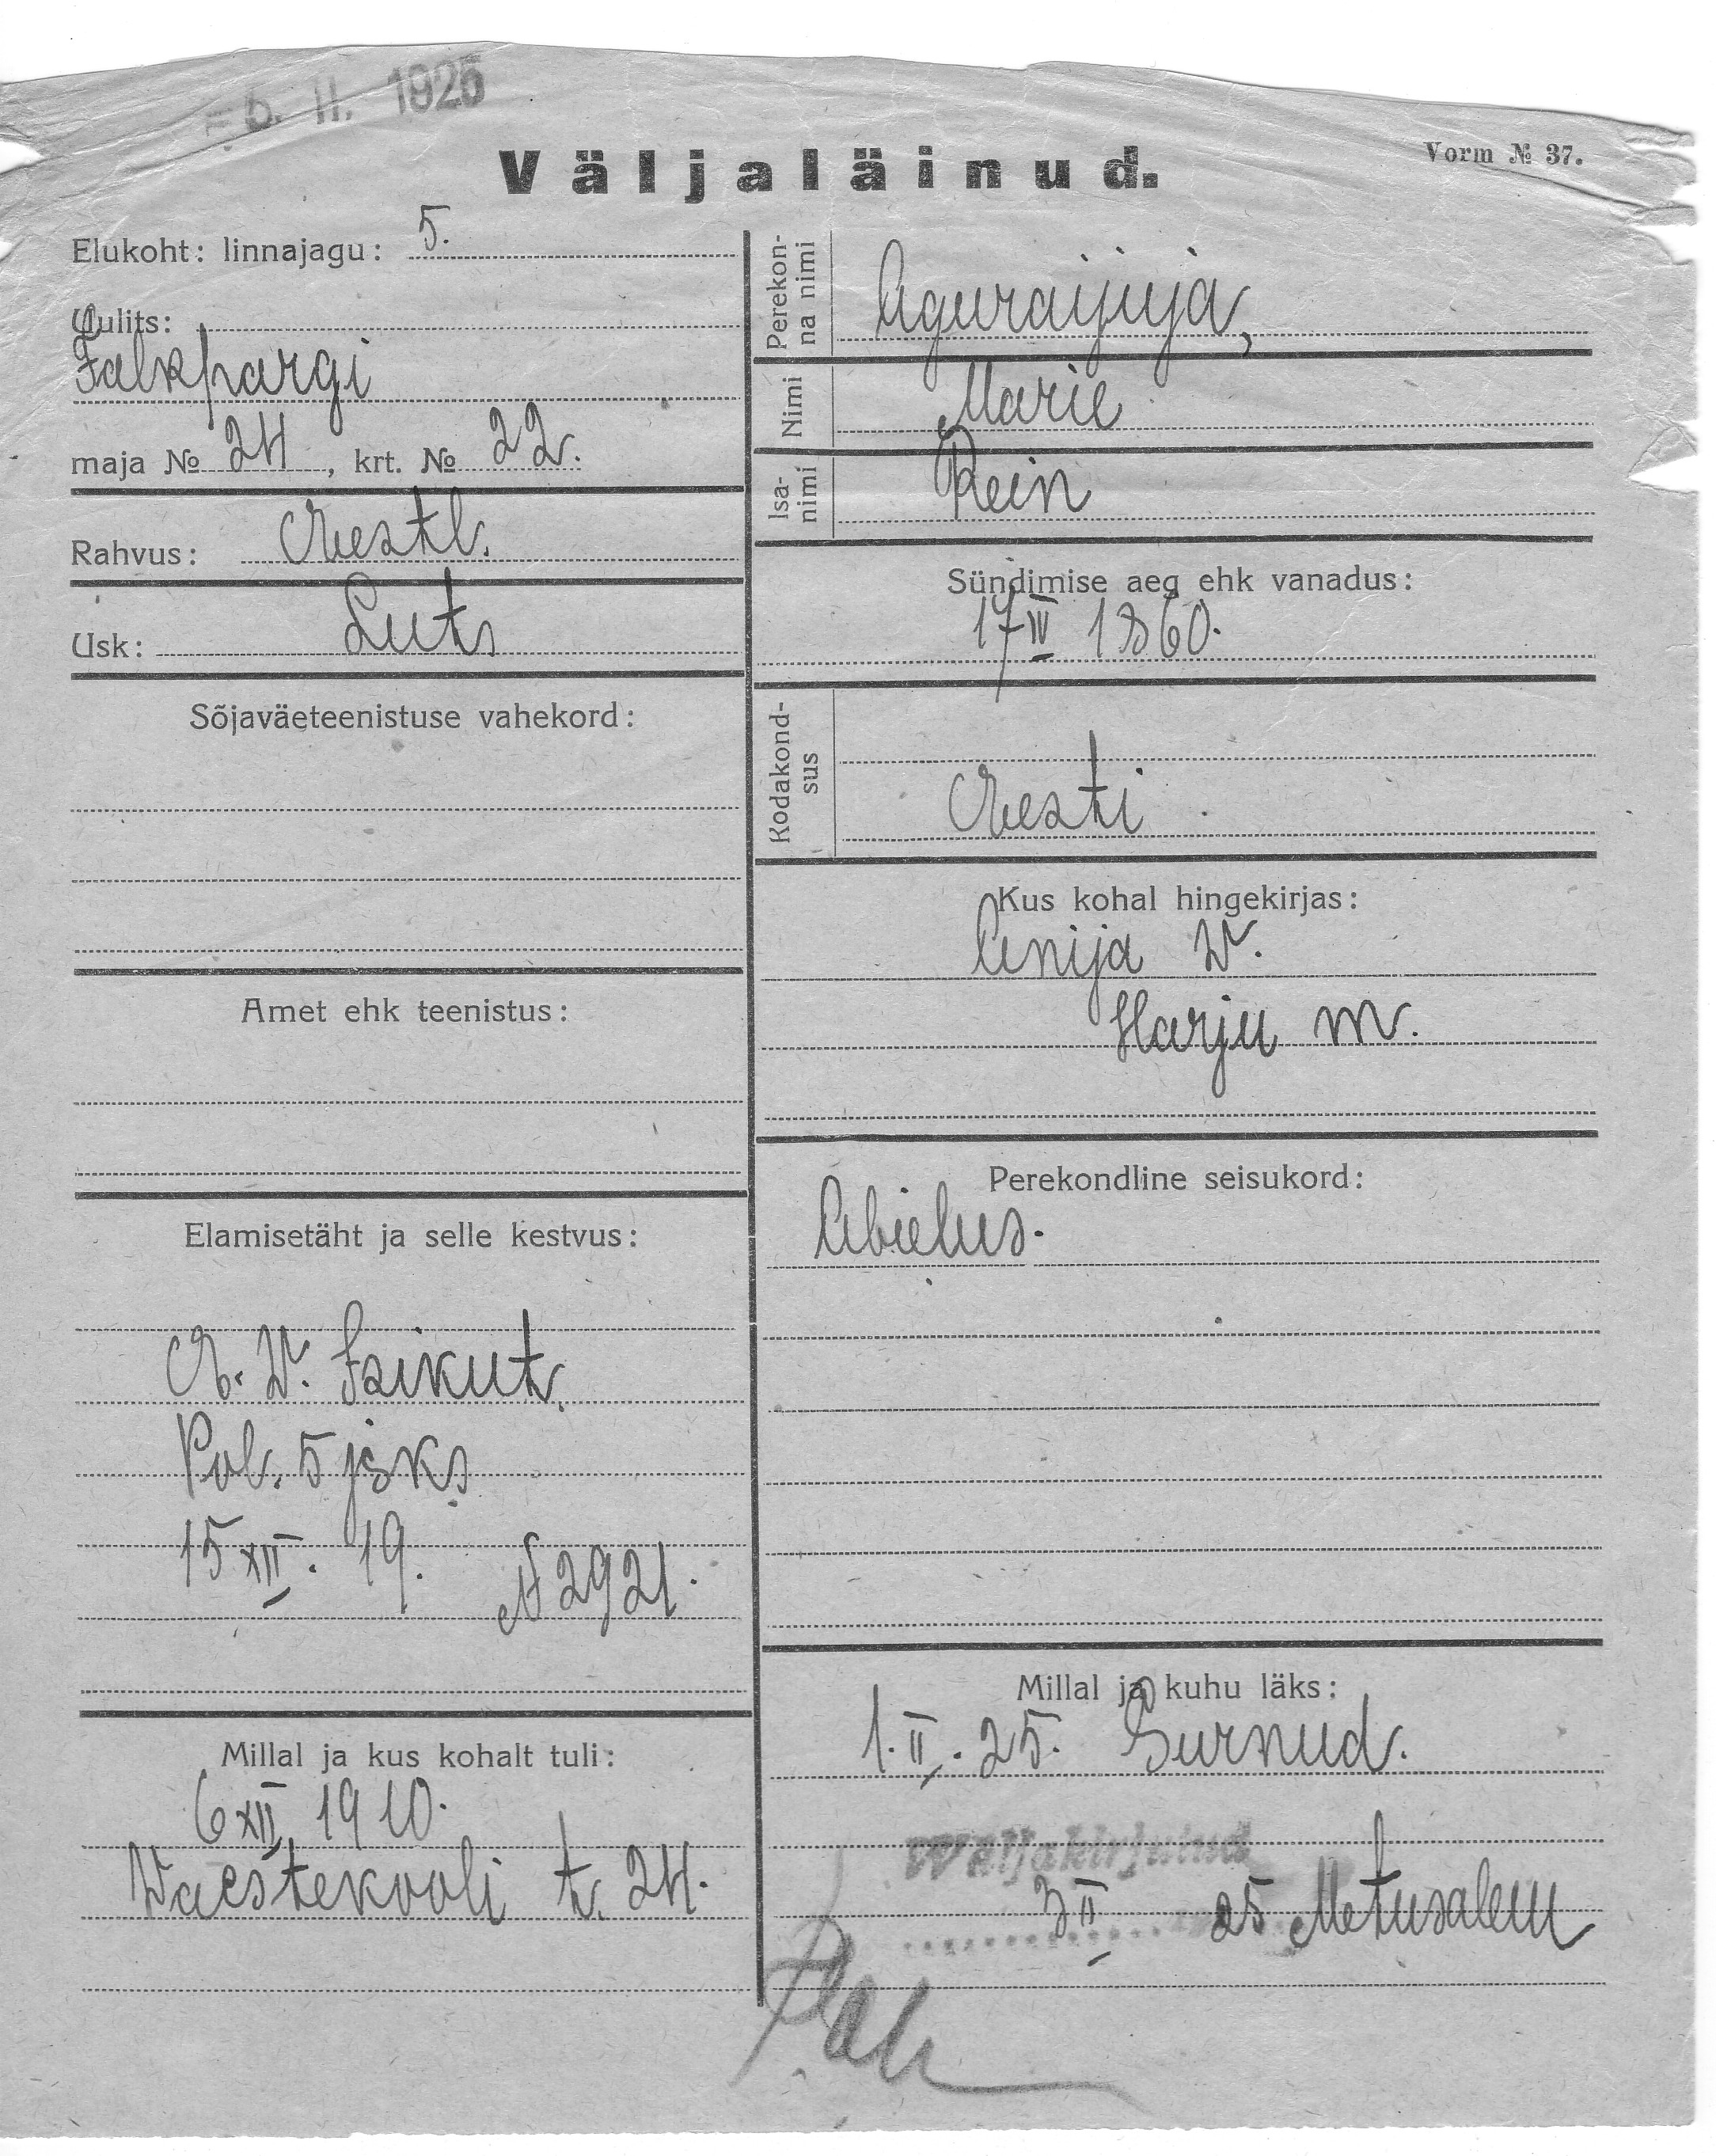 = 5. II. 1925
Väljaläinud.
Vorm № 37.
Elukoht: linnajagu: 5.
Uulits:
Falkpargi
maja № 24, krt. № 22.
Rahvus: Eestl.
Usk: Luts
Sõjaväeteenistuse vahekord:
Amet ehk teenistus:
Elamisetäht ja selle kestvus:
E. W. Isikut.
Pol. 5 jsks
15 XII. 19. N 2921.
Millal ja kus kohalt tuli:
6 XII 1910.
Waestekooli t. 24.
Perekon-
na nimi
Aguraijuja,
Nimi Marie
Isa-
nimi
Rein
Sündimise aeg ehk vanadus:
17 IV 1860.
Kodakond-
sus
Eesti
Kus kohal hingekirjas:
Anija W.
Harju m.
Perekondline seisukord:
Abielus.
Millal ja kuhu läks:
1. II. 25. Surnud.
Wäljakirjutud
3 II 25 Metusalem